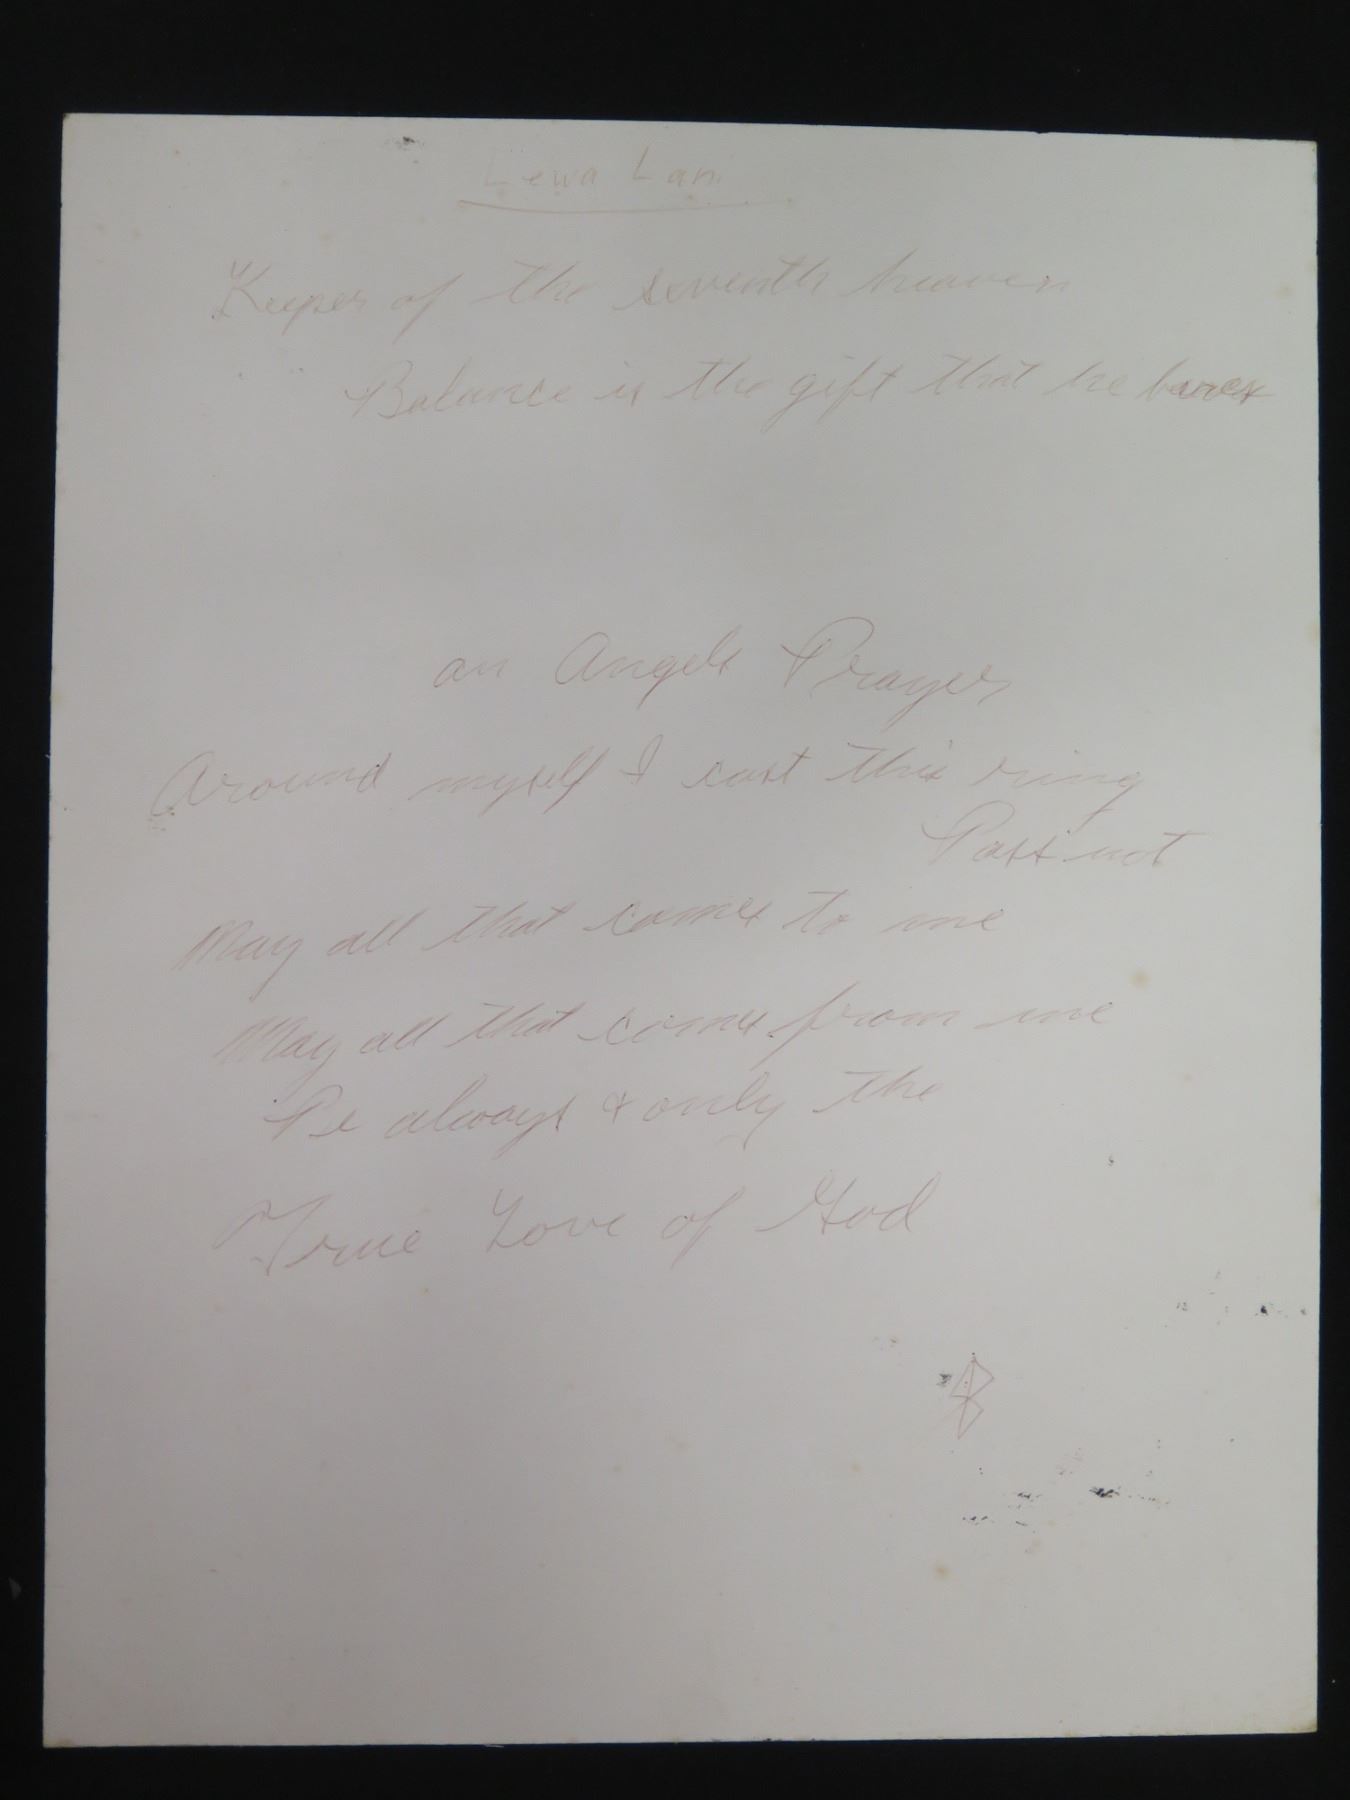 Lewa Lani
Keeper of the seventh heaven
Balance is the gift that he bares
an Angels Prayer
Around myself I cast this ring
Pass not
May all that comes to me
May all that comes from me
Be always & only the
True Love of God